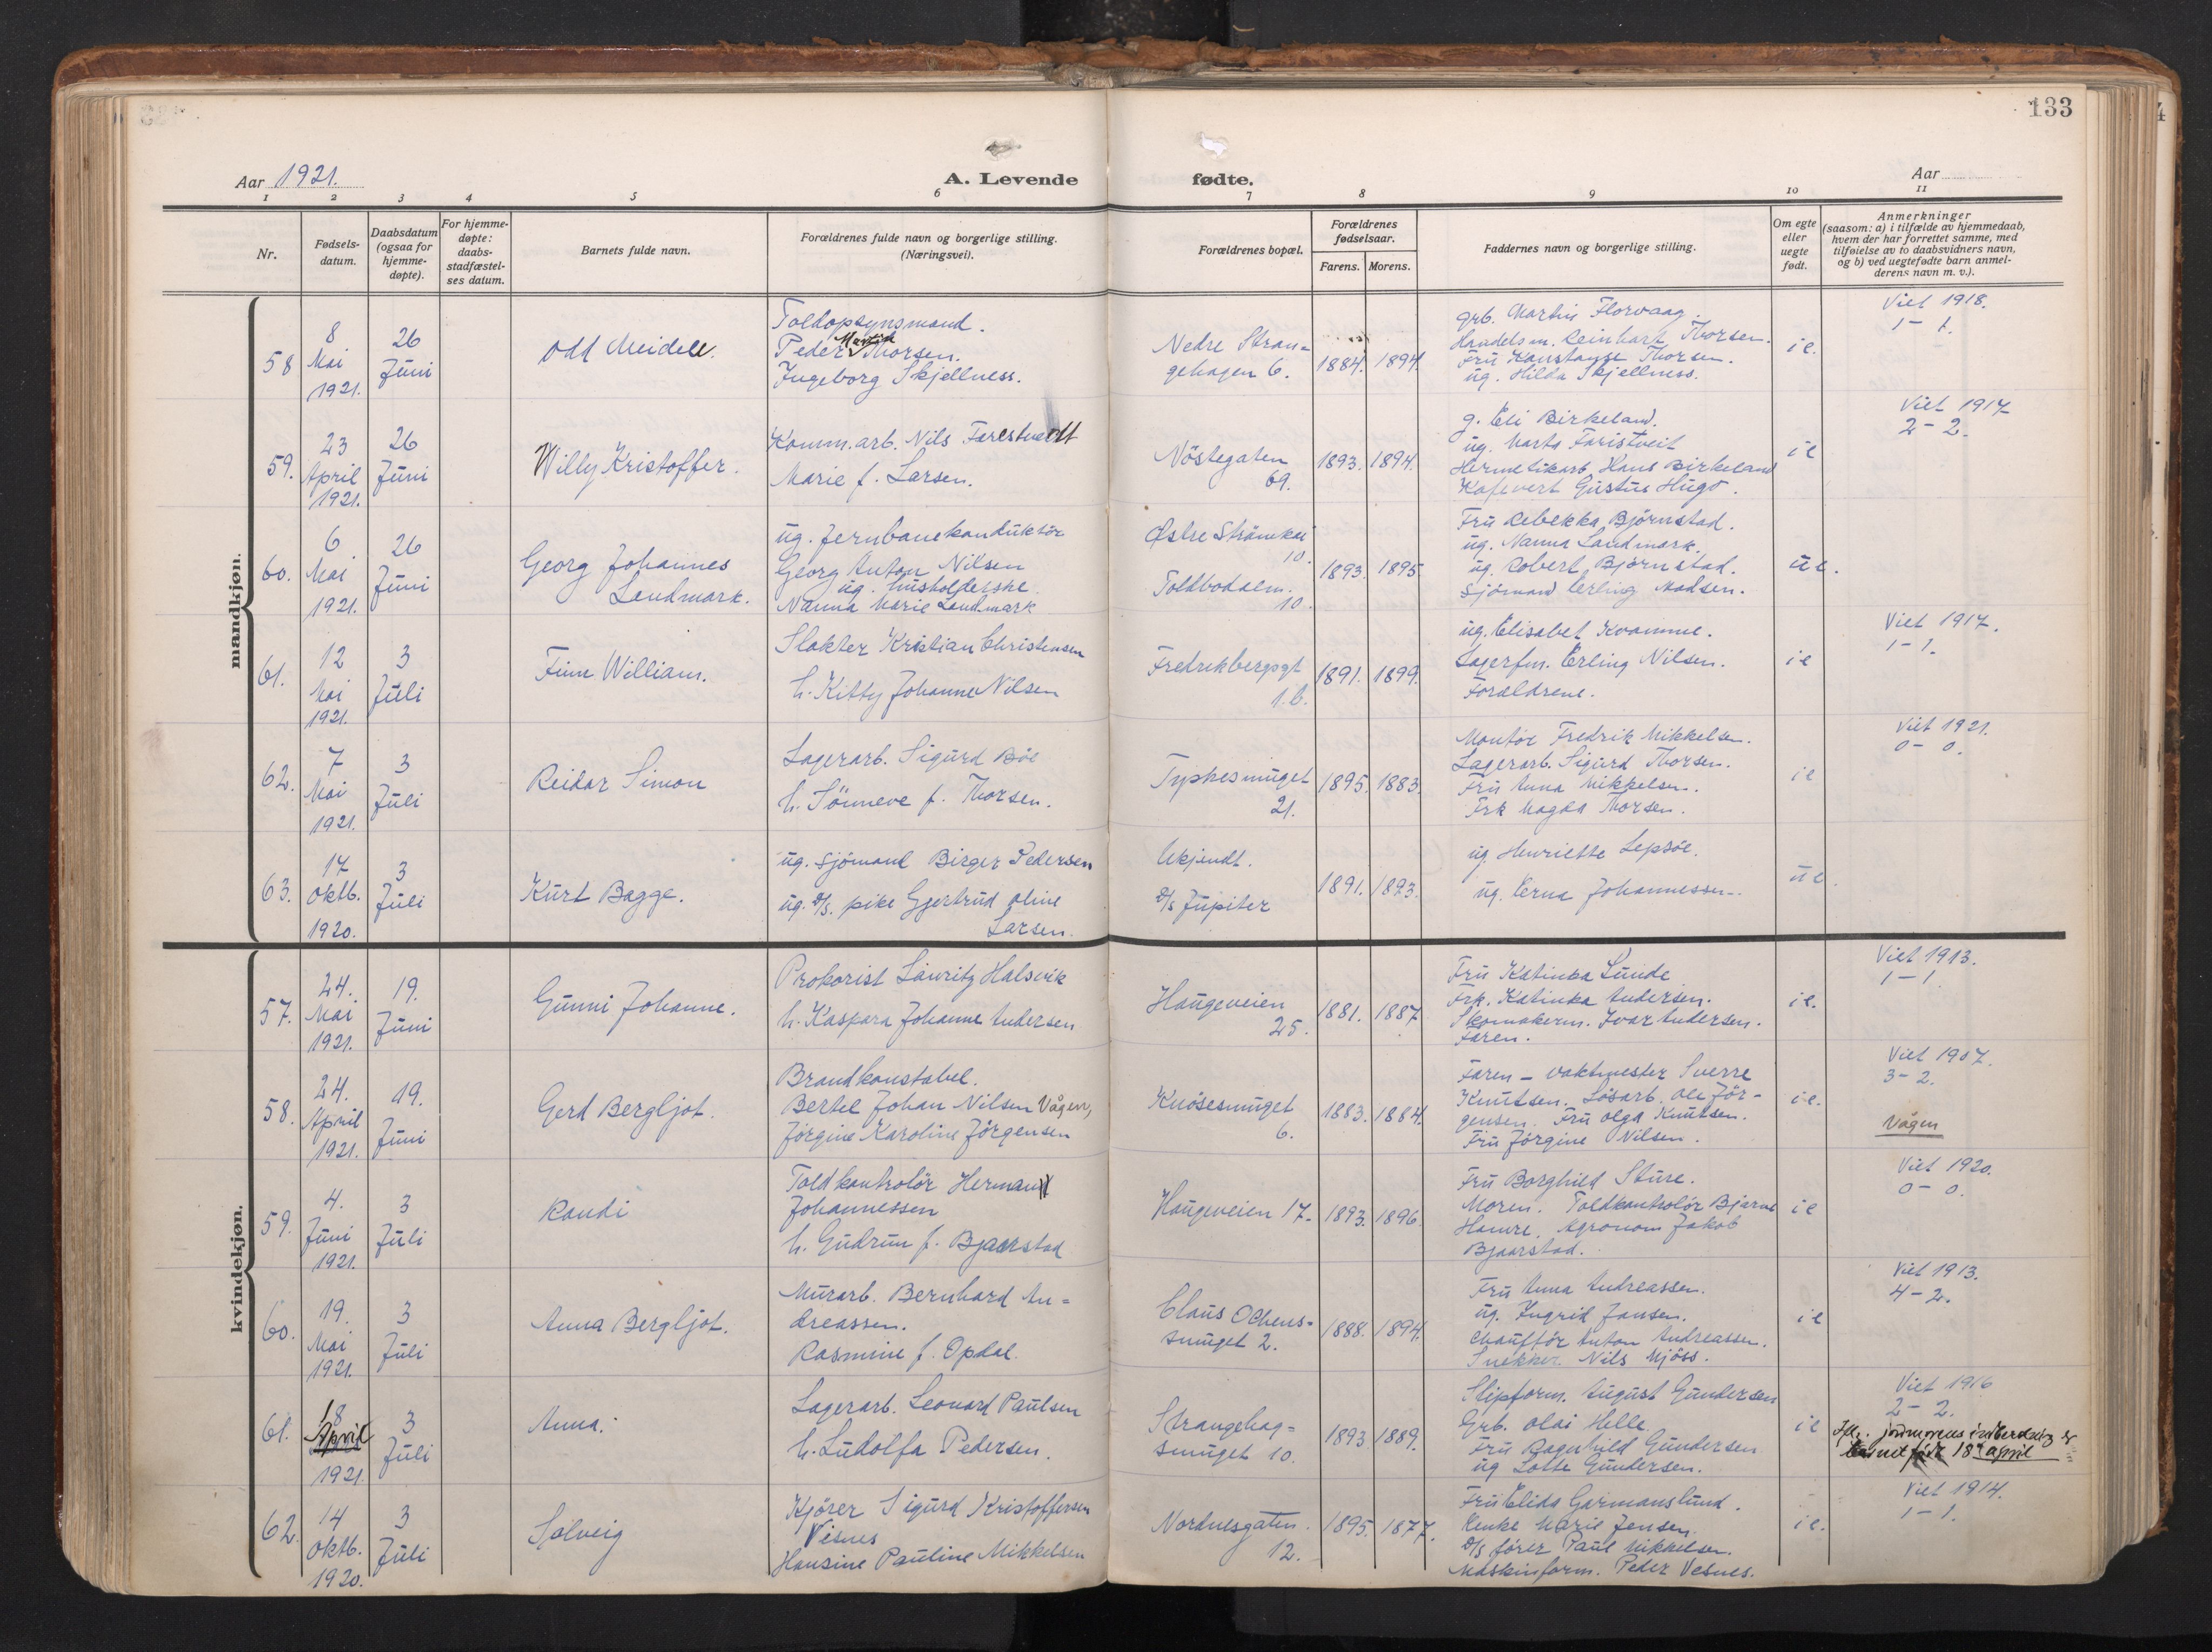 133
Aar 1921.
A. Levende fødte.
Aar
1 2 3 4 5 6 7 8 9 10 11
Nr.
Fødsels-
datum.
Daabsdatum
(ogsaa for
hjemme-
døpte).
For hjemme-
døpte:
daabs-
stadfæstel-
ses datum.
Barnets fulde navn.
Forældrenes fulde navn og borgerlige stilling.
(Næringsvei).
Forældrenes bopæl.
Forældrenes
fødselsaar.
Farens. Morens.
Faddernes navn og borgerlige stilling.
Om egte
eller
uegte
født.
Anmerkninger
(saasom: a) i tilfælde av hjemmedaab,
hvem der har forrettet samme, med
tilføielse av to daabsvidners navn,
og b) ved uegtefødte barn anmel-
derens navn m. v.).
mandkjøn.
58
8
Mai
1921.
26
Juni
Odd Meidell.
Toldopsynsmand.
Peder Martin Thorsen.
Ingeborg Skjellness.
Nedre Stran-
gehagen 6.
1884. 1894.
grb. Martin Florvaag.
Handelsm. Reinhart Thorsen.
Fru Konstanse Thorsen.
ug. Hilda Skjellness.
ie.
Viet 1918.
1-1.
59.
23
April
1921.
26
Juni
Willy Kristoffer.
Komm.arb. Nils Farestvedt
Marie f. Larsen.
Nöstegaten
69.
1893. 1894.
g. Eli Birkeland.
ug. Marta Faristveit
Hermetikarb. Hans Birkeland
Kafevert Gustus Hugo.
ie
Viet 1917
2-2.
60.
6
Mai
1921.
26
Juni
Georg Johannes
Landmark.
ug. Jernbanekonduktör
Georg Anton Nilsen
ug. husholderske
Nanna Marie Landmark
Østre Strömkai
10.
Toldbodalm.
10.
1893. 1895
Fru Rebekka Björnstad.
ug. Nanna Landmark.
ug. Robert Björnstad.
Sjömand Erling Madsen.
ue.
61.
12
Mai
1921.
3
Juli
Finn William.
Slakter Kristian Christensen
h. Kitty Johanne Nilsen
Fredrikbergsgt
1.b.
1891. 1899.
ug. Elisabet Kvamme.
Lagerfm. Erling Nilsen.
Forældrene.
ie
Viet 1917.
1-1.
62.
7
Mai
1921.
3
Juli
Reidar Simon
Lagerarb. Sigurd Böe
h. Sönneve f. Thorsen.
Typkesmuget
21.
1895. 1883.
Montör Fredrik Mikkelsen.
Lagerarb. Sigurd Thorsen.
Fru Anna Mikkelsen.
Frk Magda Thorsen.
ie
Viet 1921.
0-0.
63.
17
Oktb.
1920.
3
Juli
Kurt Bagge.
ug. Sjömand Birger Pedersen
ug. D/s. pike Gjertrud Oline
Larsen.
Ukjendt.
D/s Jupiter
1891. 1893.
ug. Henriette Lepsöe.
ug. Erna Johannessen.
ue.
kvindekjøn.
57.
24.
Mai
1921.
19.
Juni
Gunni Johanne.
Prokorist Lauritz Halsvik
h. Kaspara Johanne Andersen
Haugeveien
25.
1881. 1887
Fru Katinka Lunde
Frk. Katinka Andersen.
Skomakerm. Ivar Andersen.
Faren.
ie.
Viet 1913.
1-1
58.
24.
April
1921.
19.
Juni
Gerd Bergljot.
Brandkonstabel.
Bertel Johan Nilsen Vågen,
Jörgine Karoline Jörgensen
Knösesmuget
6.
1883. 1884.
Faren - Vaktmester Sverre
Knutsen. Lösarb. Ole Jör-
gensen. Fru Olga Knutsen.
Fru Jörgine Nilsen.
ie.
Viet 1907.
3-2.
Vågen
59.
4.
Juni
1921.
3
Juli
Randi
Toldkontrolör Herman
Johannessen
h. Gudrun f. Bjaarstad
Haugeveien 17.
1893. 1896
Fru Borghild Sture.
Moren. Toldkontrolör Bjarne
Hamre. Agronom Jakob
Bjaarstad.
ie
Viet 1920.
0-0.
60.
19.
Mai
1921.
3
Juli
Anna Bergljot.
Murarb. Bernhard An-
dreassen.
Rasmine f. Opdal.
Claus Ockens-
smuget 2.
1888. 1894.
Fru Anna Andreassen.
ug. Ingrid Jansen.
Chaufför Anton Andreassen.
Snekker Nils Mjöss.
ie
Viet 1913.
4-2.
61.
18
April
1921.
3
Juli
Anna.
Lagerarb. Leonard Paulsen
h. Ludolfa Pedersen.
Strangehag-
smuget 10.
1893. 1889.
Slipform. August Gundersen
Grb. Olai Helle.
Fru Ragnhild Gundersen
ug Lotte Gundersen.
ie
Viet 1916
2-2.
Iflg. jordmorens indberetning er
barnet født 18de april
62.
14
Oktb.
1920.
3
Juli
Solveig
Kjörer Sigurd Kristoffersen
Vesnes
Hansine Pauline Mikkelsen
Nordnesgaten.
12.
1895. 1877.
Fru Elida Garmanslund.
Enke Marie Jensen
D/s förer Paul Mikkelsen.
Maskinform. Peder Vesnes.
ie.
Viet 1914.
1-1.